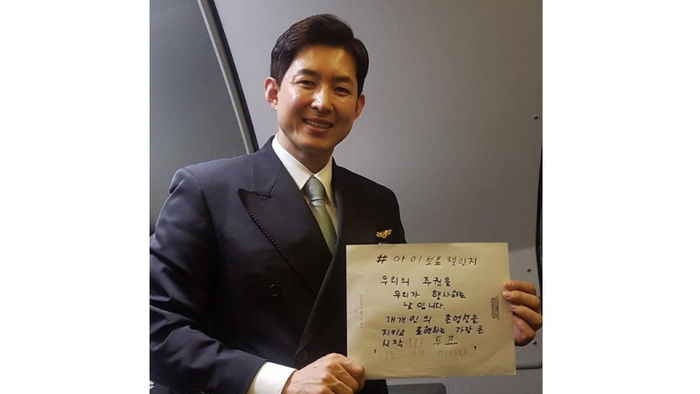 #아이보트챌린지
우리의 주권을
우리가 행사하는
날 입니다.
개개인의 존엄성을
지키고 표현하는 가장 큰
시작!!! 투표